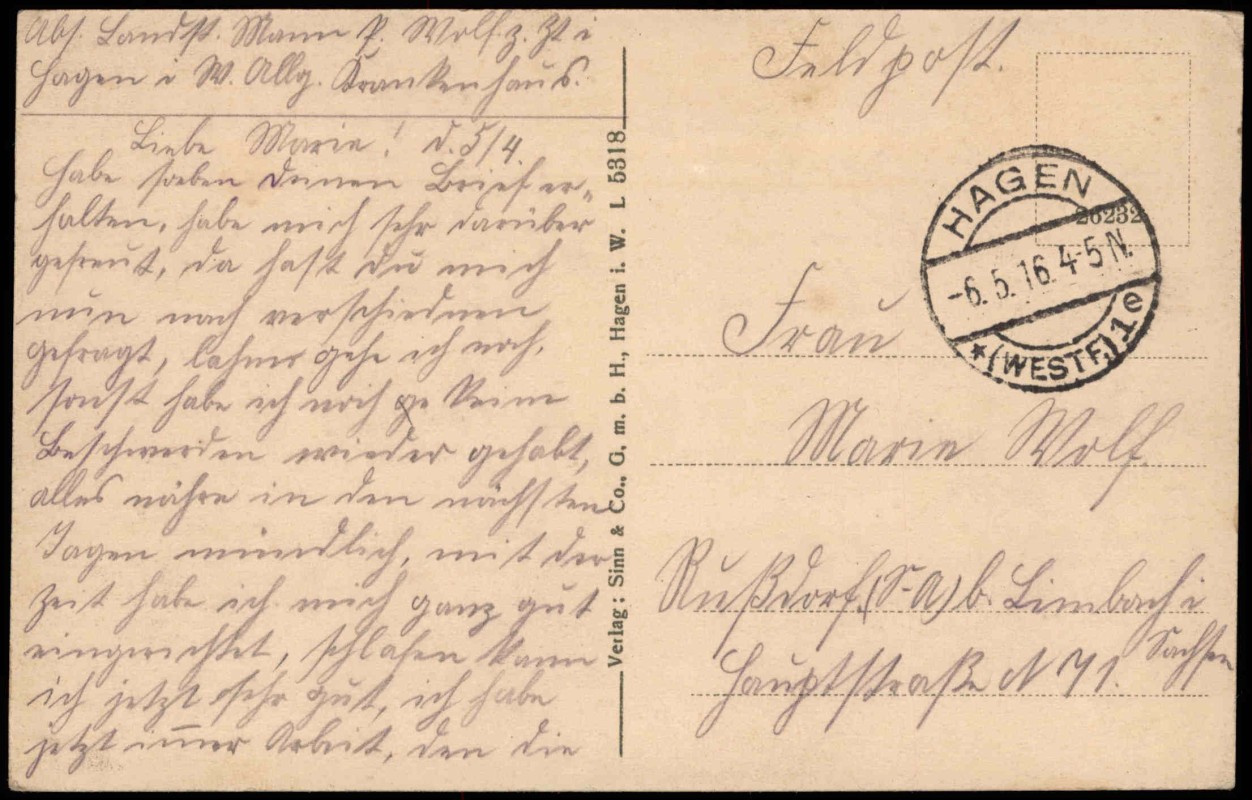 Abs. Landst. Mann P. Wolf z. Zt i
Hagen i W. Allg. Krankenhaus.
Liebe Marie! d. 5/4.
Habe soeben deinen Brief er„
halten, habe mich sehr darüber
gefreut, da hast du mich
nun nach verschiednen
gefragt, lahm gehe ich noch,
sonst habe ich noch keine
Beschwerden wieder gehabt,
alles nähre in den nächsten
Tagen mündlich, mit der
Zeit habe ich mich ganz gut
eingerichtet, schlafen kann
ich jetzt sehr gut, ich habe
jetzt imer Arbeit, den die
Verlag: Sinn & Co., G. m. b. H., Hagen i. W. L 5318
Feldpost.
26232
HAGEN
-6.5.16.4-5N.
*(WESTF.)1e
Frau
Marie Wolf.
Rußdorf (S-A) b. Limbach i
Sachsen
Hauptstraße N 71.